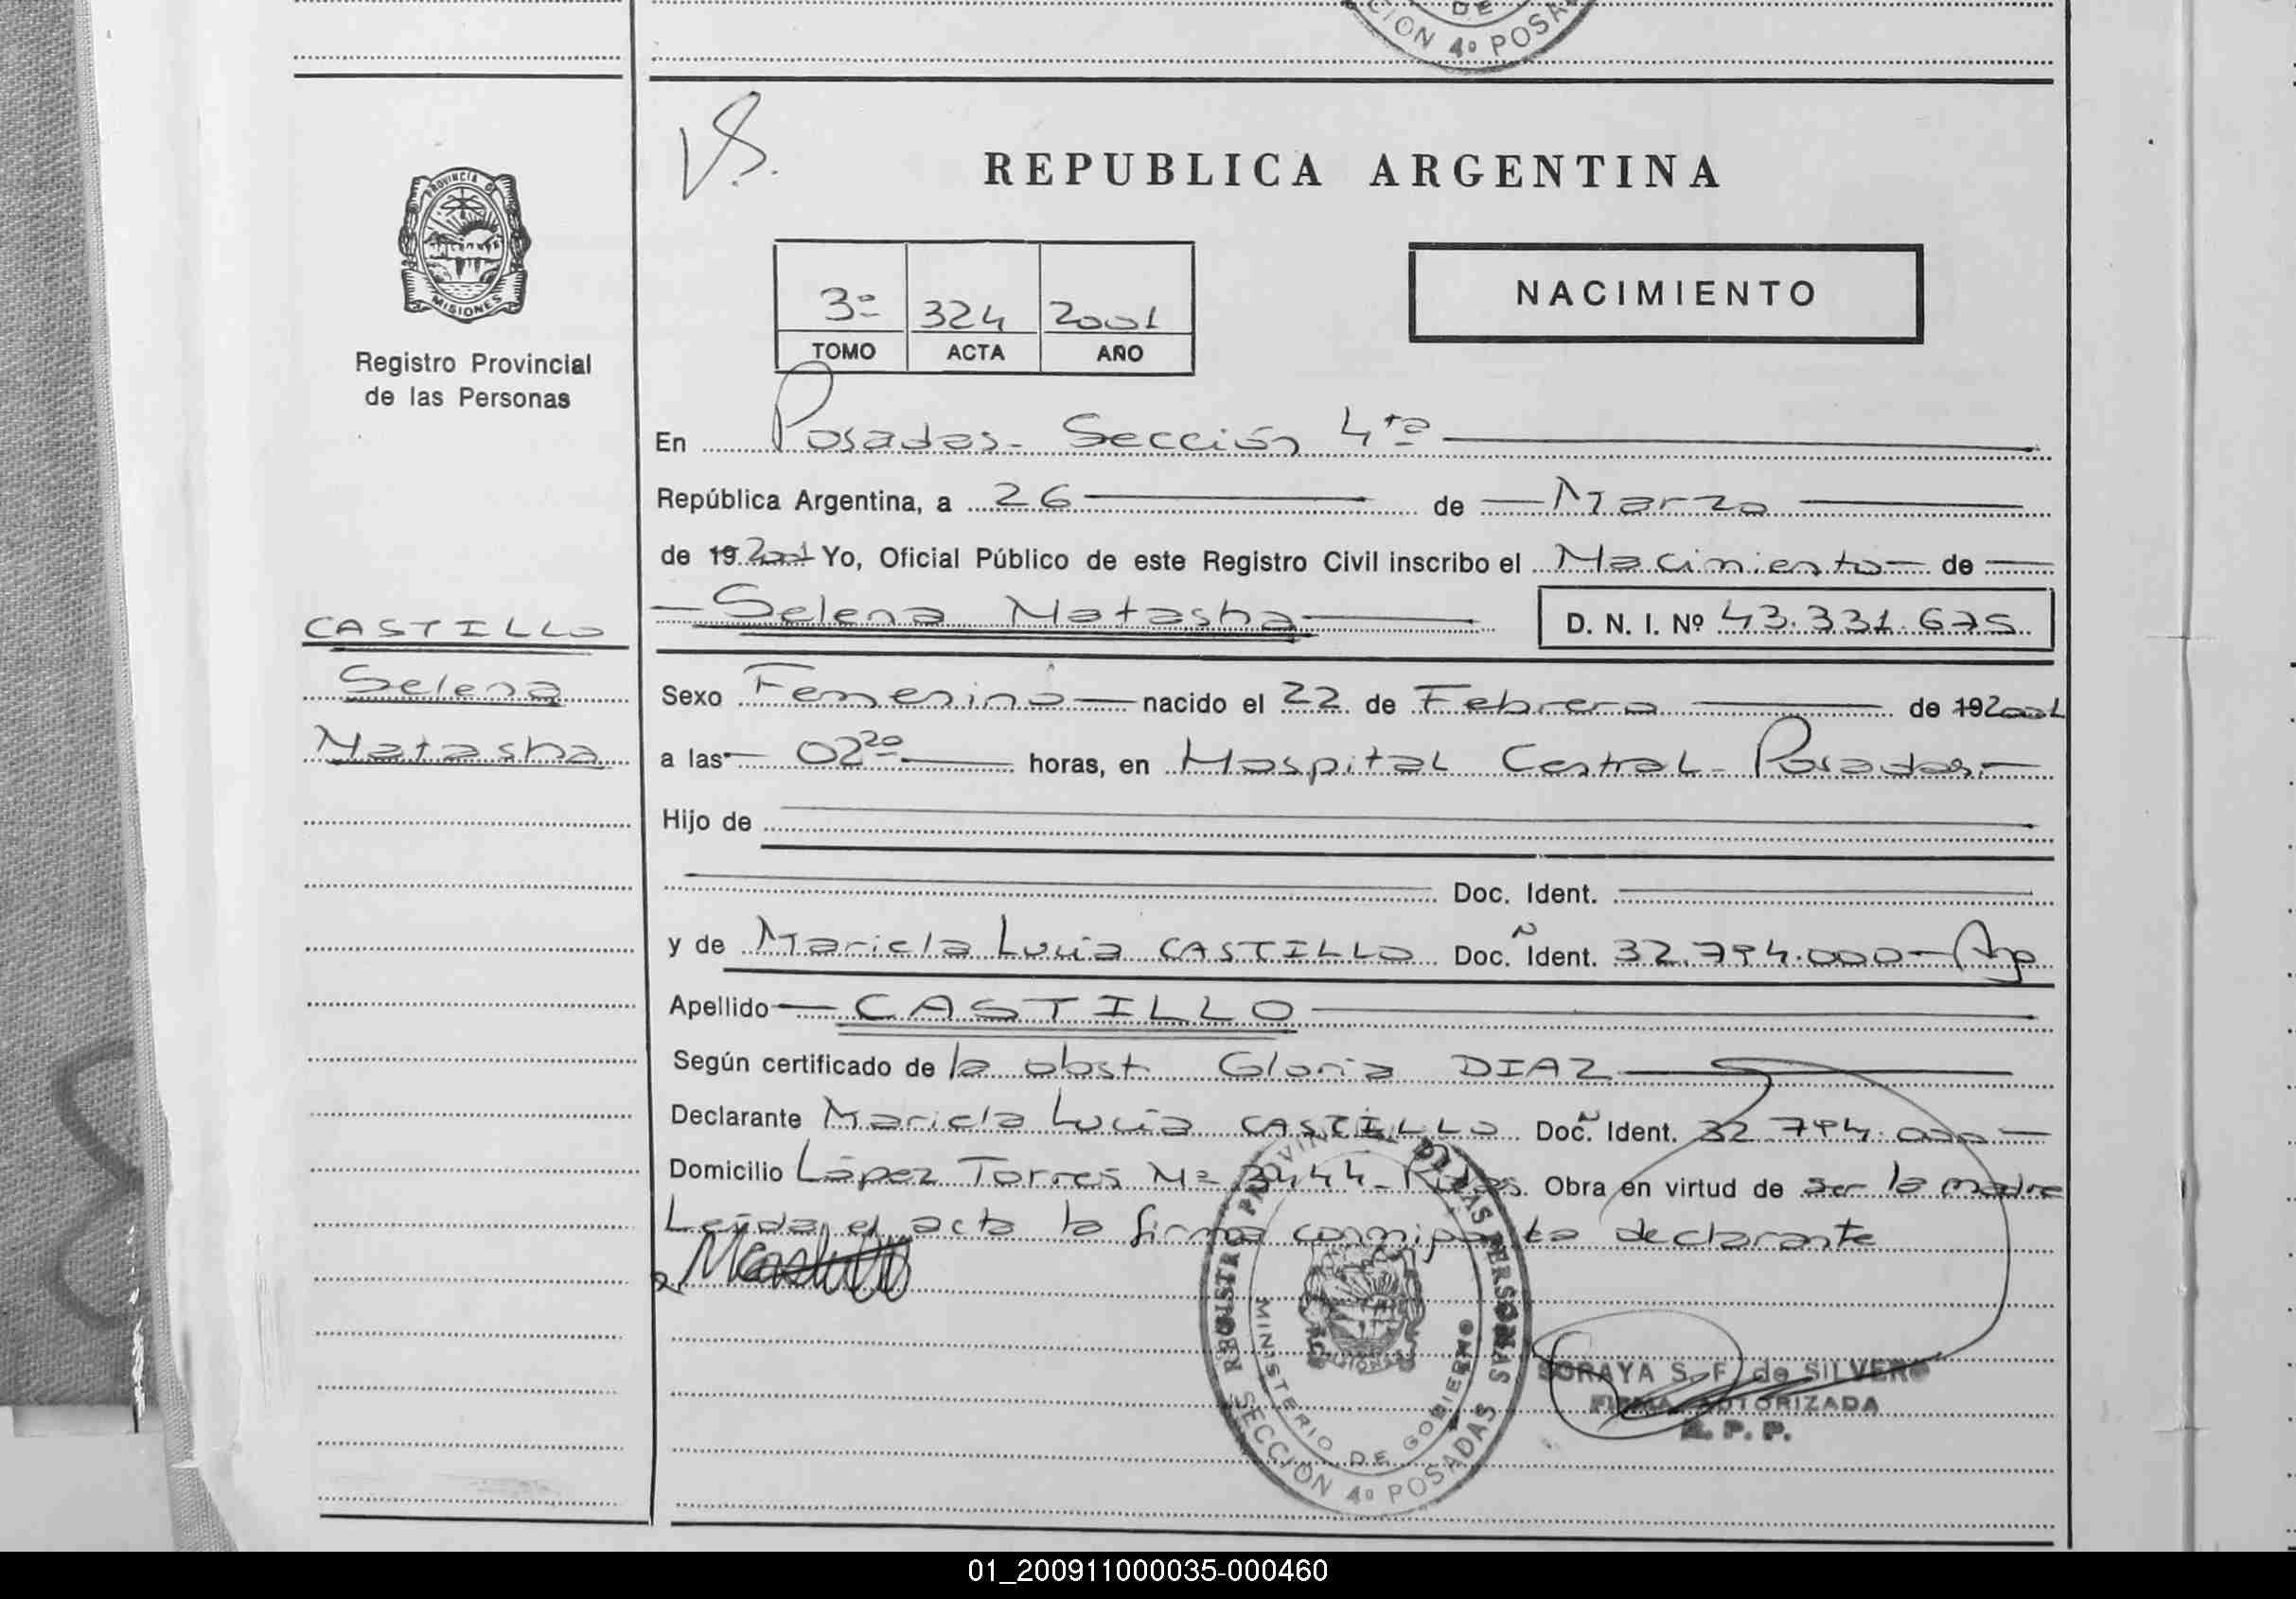 DE
CION 4º POSA
V.S.
PROVINCIA DE
MISIONES
Registro Provincial
de las Personas
REPUBLICA ARGENTINA
3º 324 2001
TOMO ACTA AÑO
NACIMIENTO
En Posadas - Sección 4ta
República Argentina, a 26 de Marzo
de 19 2001 Yo, Oficial Público de este Registro Civil inscribo el Nacimiento de
Selena Natasha D. N. I. Nº 43.331.675
CASTILLO
Selena
Natasha
Sexo Femenino nacido el 22 de Febrero de 19 2001
a las 02 20 horas, en Hospital Central - Posadas
Hijo de
Doc. Ident.
y de Mariela Lucia CASTILLO Doc. Ident. 32.794.000 - Arg
Apellido CASTILLO
Según certificado de la obst. Gloria DIAZ
Declarante Mariela Lucia CASTILLO Doc. Ident. 32.794.000
Domicilio López Torres Nº 3444 - Obra en virtud de ser la madre
Leída el acta la firma conmigo la declarante
REGISTRO DE LAS PERSONAS
MINISTERIO DE GOBIERNO
SECCION 4º POSADAS
MISIONES
SORAYA S. F. de SILVERO
FIRMA AUTORIZADA
R. P. P.
01_200911000035-000460